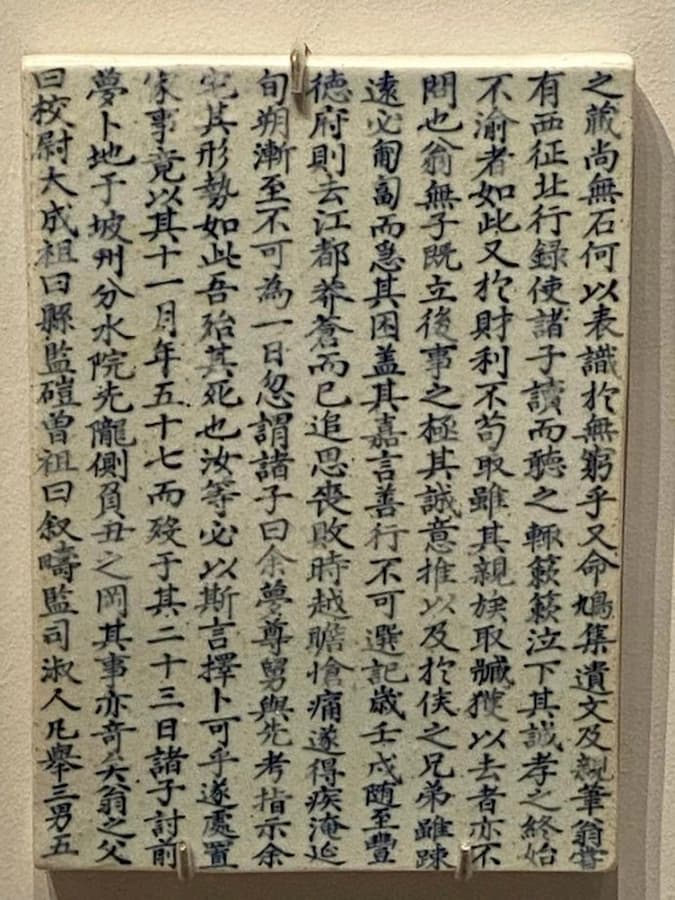 之藏尚無石何以表識於無窮乎又命鳩集遺文及親筆翁嘗
有西征北行録使諸子讀而聽之輒簌簌泣下其誠孝之終始
不渝者如此又於財利不苟取雖其親族取臧獲以去者亦不
問也翁無子既立後事之極其誠意推以及於侠之兄弟雖踈
遠必匍匐而急其困盖其嘉言善行不可選記歲壬戌随至豐
德府則去江都莽蒼而已追思喪敗時越瞻愴痛遂得疾淹延
旬朔漸至不可為一日忽謂諸子曰余夢尊舅與先考指示余
宅其形勢如此吾殆其死也汝等必以斯言擇卜可乎遂處置
家事竟以其十一月年五十七而殁于其二十三日諸子討前
夢卜地于坡州分水院先隴側負丑之岡其事亦竒矣翁之父
曰校尉大成祖曰縣監磑曾祖曰叙疇監司淑人凡舉三男五